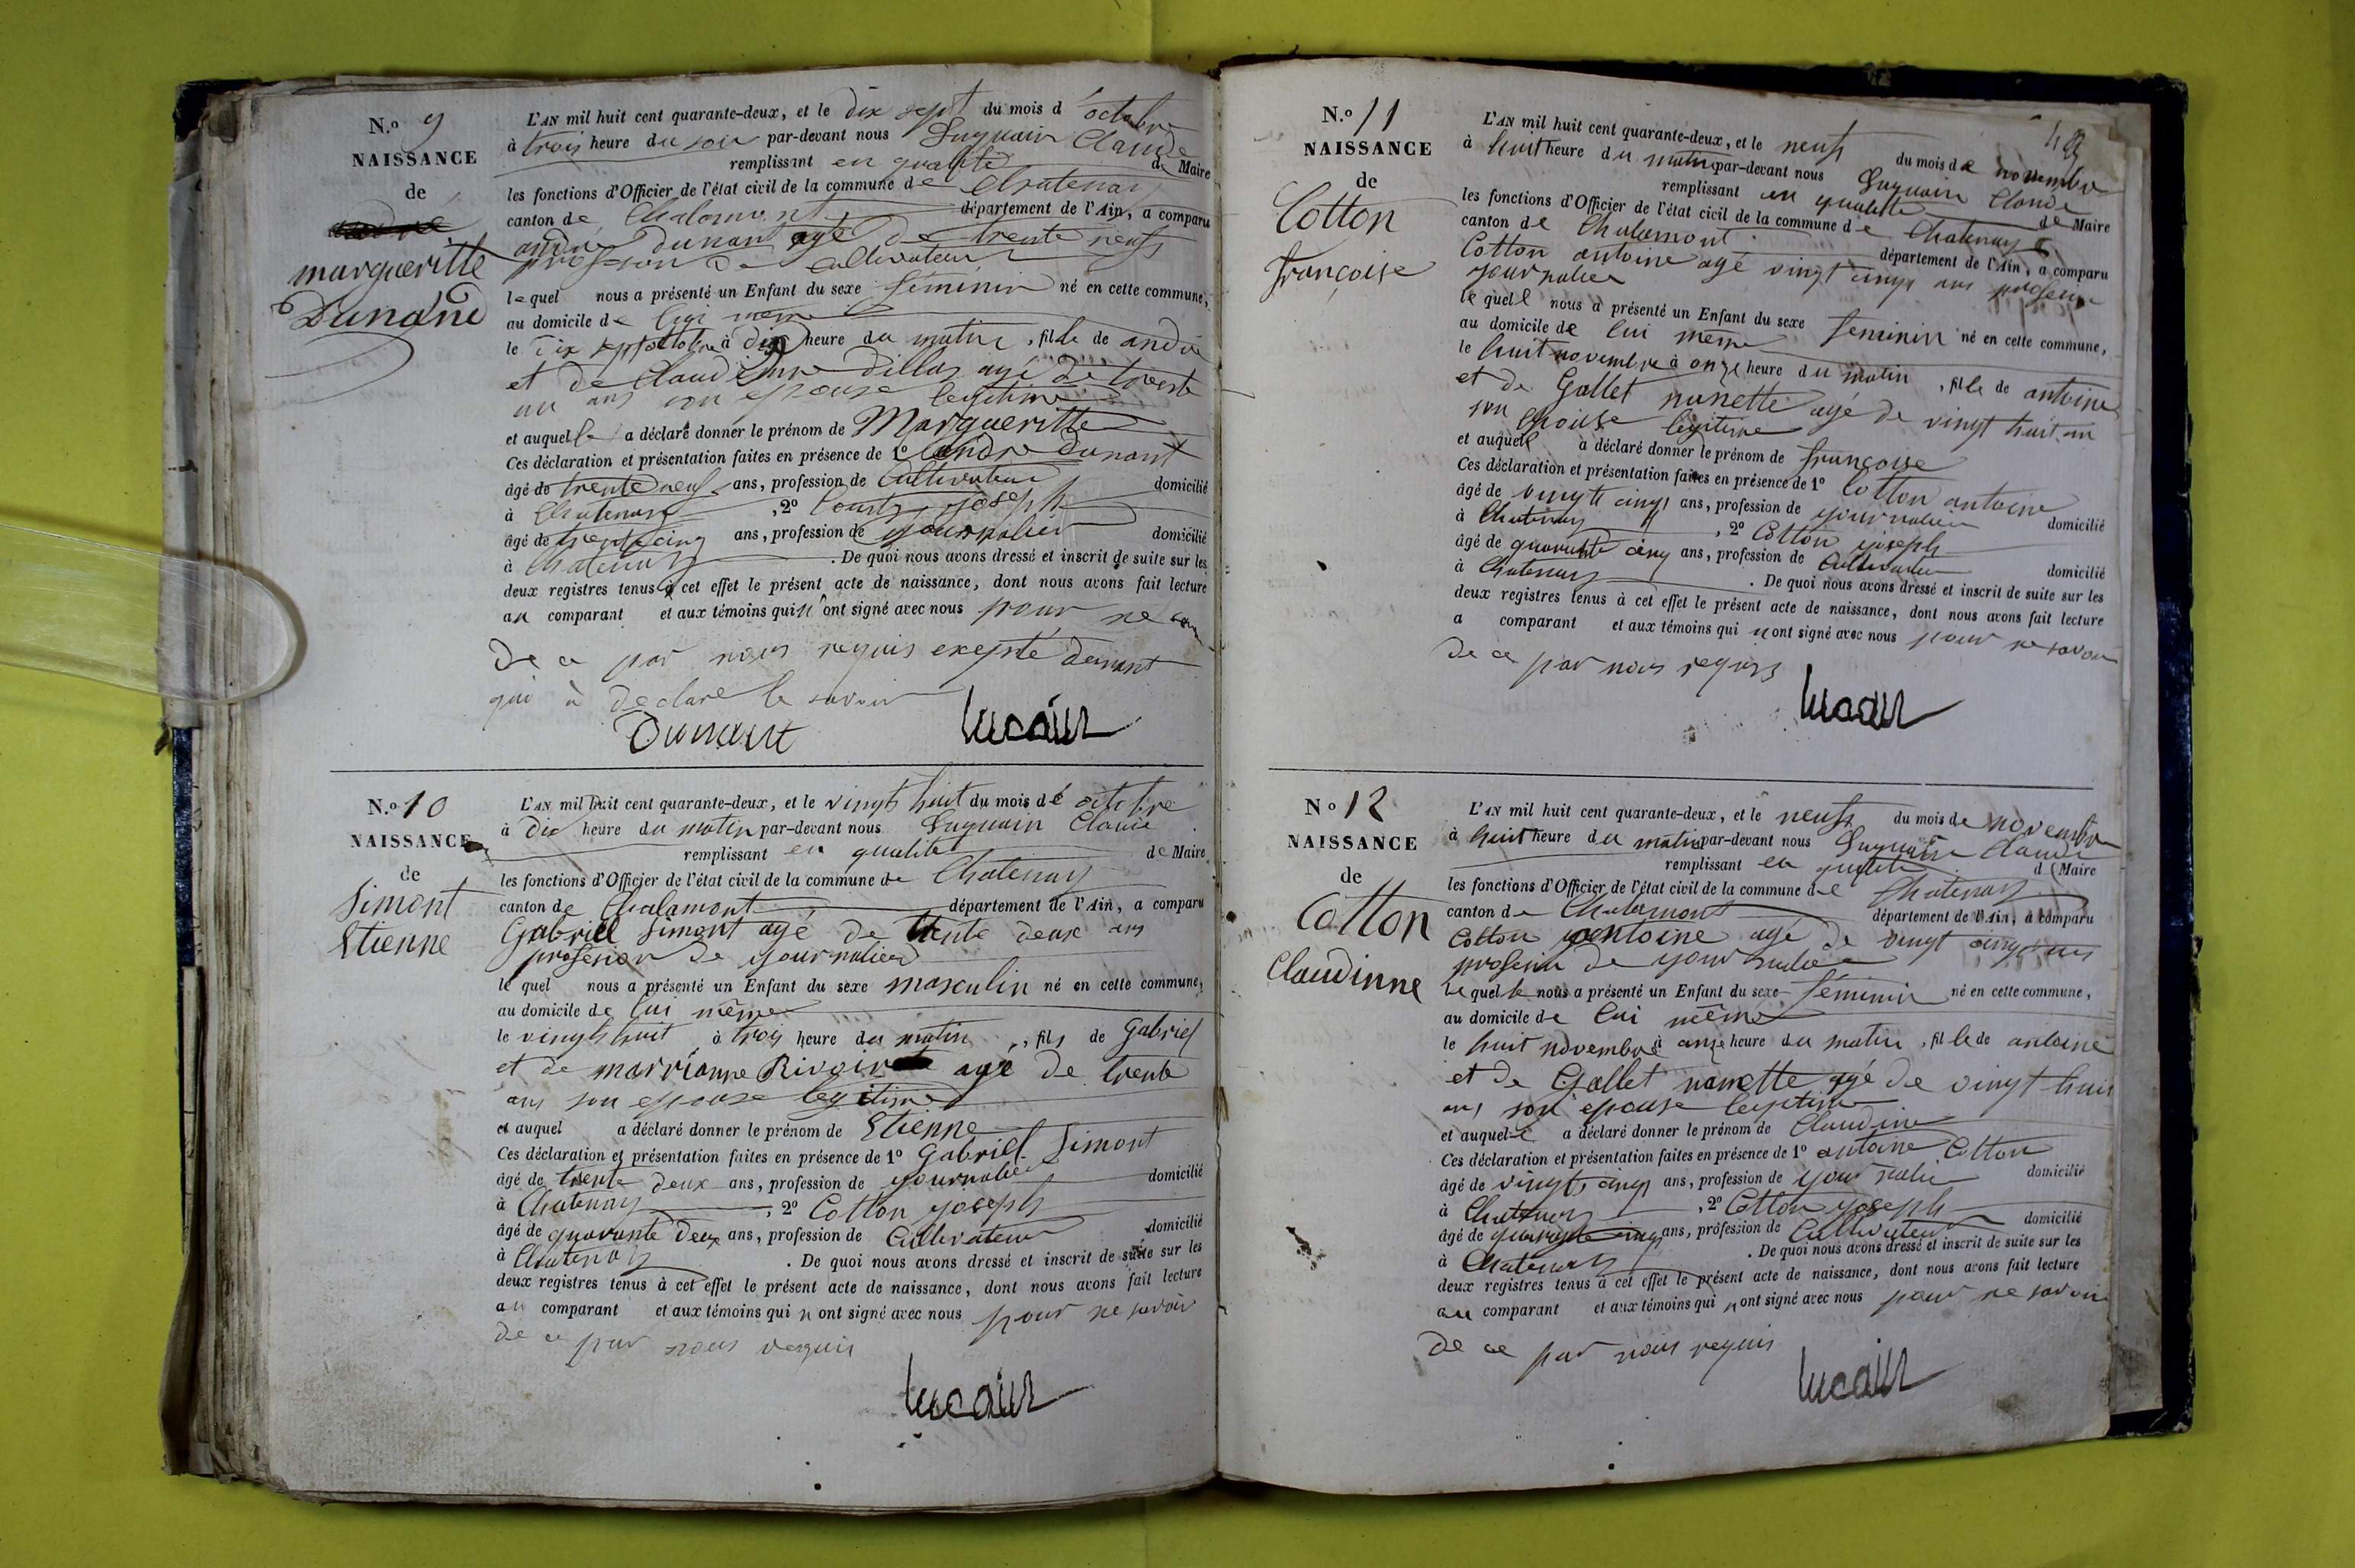 N.º 9
NAISSANCE
de
margueritte
Dunand
L'AN mil huit cent quarante-deux, et le dix sept du mois d'octobre
à trois heure du soir par-devant nous Luquain Claude
remplissant en qualité de Maire
les fonctions d'Officier de l'état civil de la commune de Chatenay
canton de Chalamont département de l'Ain, a comparu
andré dunant agé de trente neufs
profession de cultivateur
lequel nous a présenté un Enfant du sexe feminin né en cette commune,
au domicile de lui meme
le dix sept octobre à dix heure du matin, fille de andré
et de Claudinne Dillas agé de trente
un ans son epouse legitime
et auquelle a déclaré donner le prénom de Margueritte
Ces déclaration et présentation faites en présence de 1º andre dunant
âgé de trente neuf ans, profession de Cultivateur domicilié
à Chatenay, 2º joseph
âgé de trente cinq ans, profession de journalier domicilié
à Chatenay. De quoi nous avons dressé et inscrit de suite sur les
deux registres tenus à cet effet le présent acte de naissance, dont nous avons fait lecture
au comparant et aux témoins qui n'ont signé avec nous pour ne savoir
de ce par nous requis exepté dunant
qui à declare le savoir
Dunant Lucain
N.º 10
NAISSANCE
de
Simont
Etienne
L'AN mil huit cent quarante-deux, et le vingts huit du mois dé octobre
à dix heure du matin par-devant nous Luquain Claude
remplissant en qualité de Maire
les fonctions d'Officier de l'état civil de la commune de Chatenay
canton de Chalamont département de l'Ain, a comparu
Gabriel Simont agé de trente deux ans
profession de journalier
le quel nous a présenté un Enfant du sexe masculin né en cette commune,
au domicile de lui même
le vingts huit à trois heure du matin, fils de Gabriel
et de marrianne Rivoir agé de trente
ans son epouse legitime
et auquel a déclaré donner le prénom de Etienne
Ces déclaration et présentation faites en présence de 1º Gabriel Simont
âgé de trente deux ans, profession de journalier domicilié
à Chatenay, 2º Cotton joseph
âgé de quarante deux ans, profession de Cultivateur domicilié
à Chatenay. De quoi nous avons dressé et inscrit de suite sur les
deux registres tenus à cet effet le présent acte de naissance, dont nous avons fait lecture
au comparant et aux témoins qui n ont signé avec nous pour ne savoir
de ce par nous requis
Lucain
N.º 11
NAISSANCE
de
Cotton
françoise
L'AN mil huit cent quarante-deux, et le neufs du mois de novembre
à huit heure du matin par-devant nous Luquain Claude
remplissant en qualité de Maire
les fonctions d'Officier de l'état civil de la commune de Chatenay
canton de Chalamont département de l'Ain, a comparu
Cotton antoine agé vingt cinq ans profession
journalier
le quel nous a présenté un Enfant du sexe feminin né en cette commune,
au domicile de lui meme
le huit novembre à onze heure du matin, fille de antoine
et de Gallet nanette agé de vingt huit an
son epouse legitime
et auquel a déclaré donner le prénom de françoise
Ces déclaration et présentation faites en présence de 1º Cotton antoine
âgé de vingts cinq ans, profession de journalier domicilié
à Chatenay, 2º Cotton joseph
âgé de quarante cinq ans, profession de Cultivateur domicilié
à Chatenay. De quoi nous avons dressé et inscrit de suite sur les
deux registres tenus à cet effet le présent acte de naissance, dont nous avons fait lecture
a comparant et aux témoins qui n ont signé avec nous pour ne savoir
de ce par nous requis
Lucain
N.º 12
NAISSANCE
de
Cotton
Claudinne
L'AN mil huit cent quarante-deux, et le neufs du mois de novembre
à huit heure du matin par-devant nous Luquain Claude
remplissant en qualité d Maire
les fonctions d'Officier de l'état civil de la commune de Chatenay
canton de Chalamont département de l'Ain, a comparu
Cotton antoine agé de vingt cinq ans
profession de journalier
lequel nous a présenté un Enfant du sexe féminin né en cette commune,
au domicile de lui même
le huit novembre à onze heure du matin, fille de antoine
et de Gallet nanette agé de vingt huit
ans son epouse legitime
et auquel a déclaré donner le prénom de Claudine
Ces déclaration et présentation faites en présence de 1º antoine Cotton
âgé de vingts cinq ans, profession de journalier domicilié
à Chatenay, 2º Cotton joseph
âgé de quarante cinq ans, profession de Cultivateur domicilié
à Chatenay. De quoi nous avons dressé et inscrit de suite sur les
deux registres tenus à cet effet le présent acte de naissance, dont nous avons fait lecture
au comparant et aux témoins qui n ont signé avec nous pour ne savoir
de ce par nous requis
Lucain